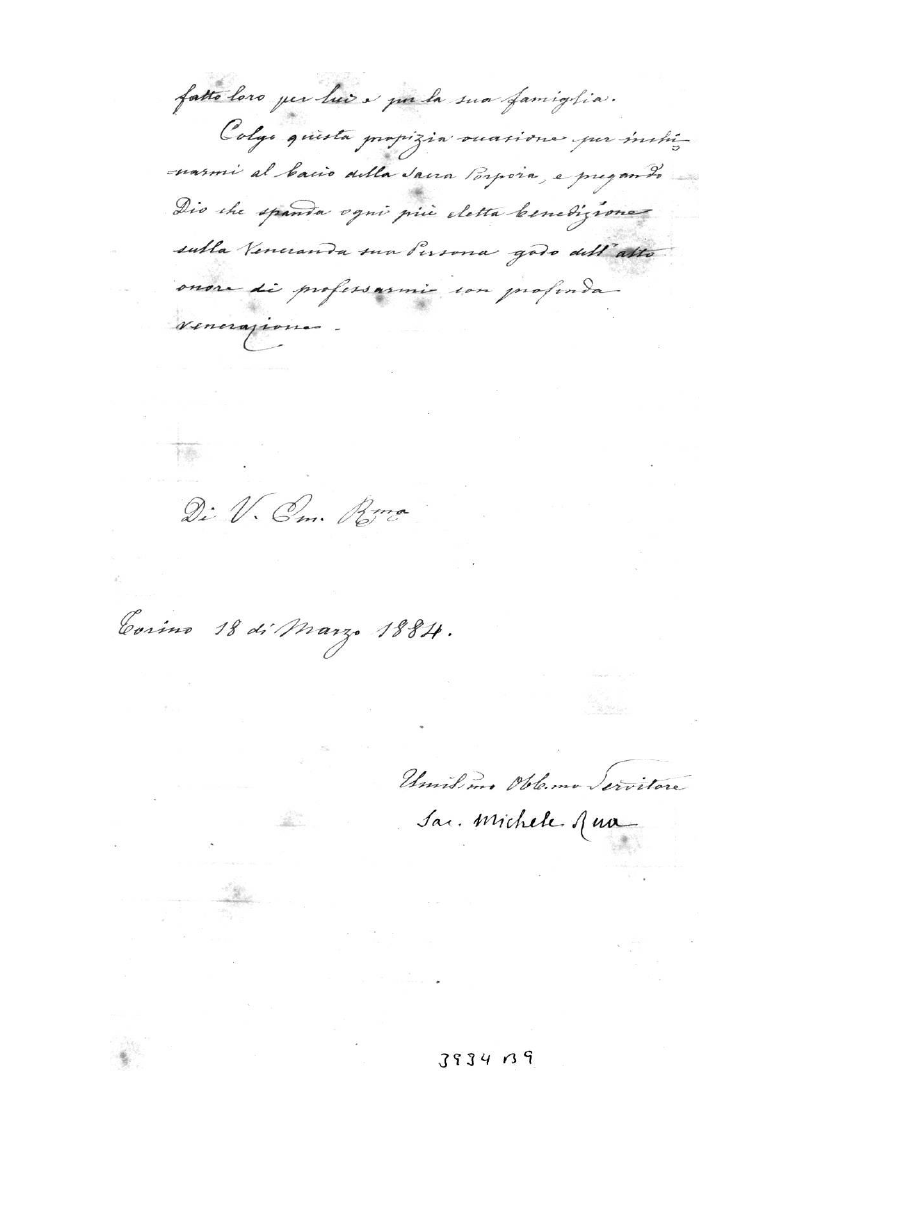 fatto loro per lui e per la sua famiglia.
Colgo questa propizia occasione per inchi-
narmi al bacio della Sacra Porpora, e pregando
Dio che spanda ogni più eletta benedizione
sulla Veneranda sua Persona godo dell'alto
onore di professarmi con profonda
venerazione.
Di V. Em. Rma
Torino 18 di Marzo 1884.
Umil.mo Obb.mo Servitore
Sac. Michele Rua
3934 B9